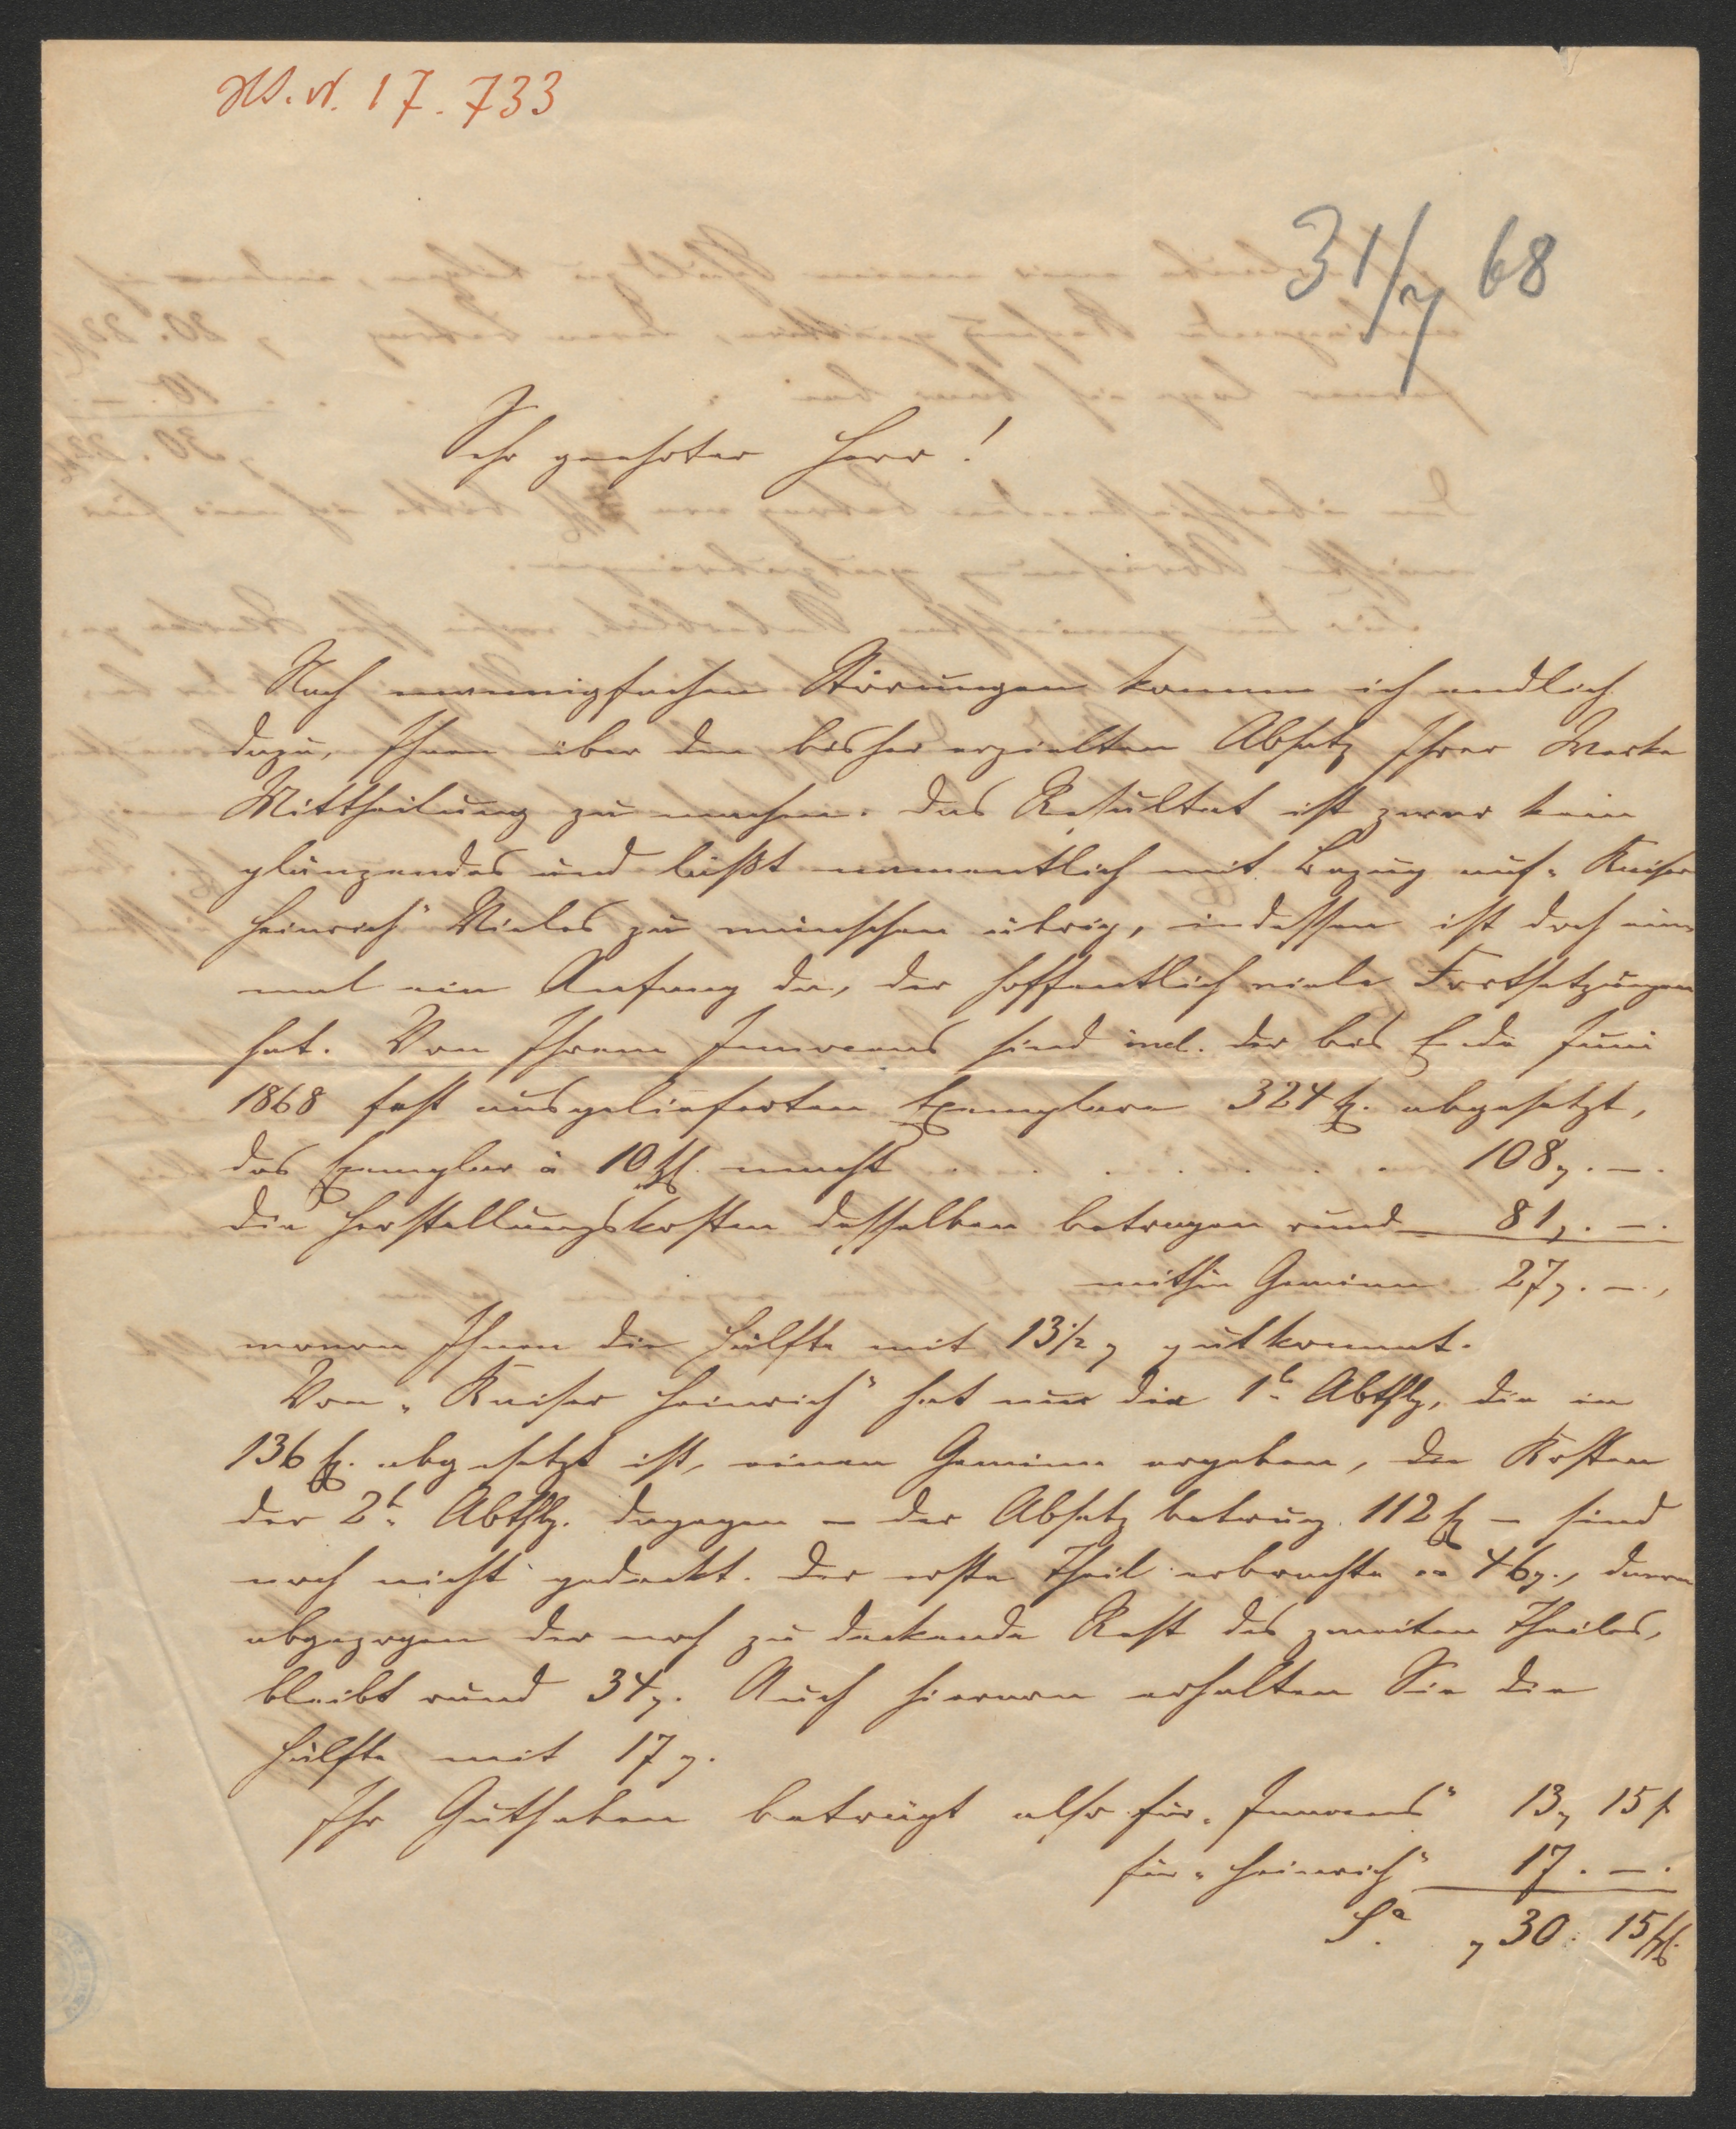 17.733
31/7 68
Sehr geehrter Herr!
Nach mannigfachen Störungen komme ich endlich
dazu, Ihnen über den bisher erzielten Absatz Ihrer Werke
Mittheilung zu machen. Das Resultat ist zwar kein
glänzendes und läßt namentlich mit Bezug auf „Kaiser
Heinrich“ Vieles zu wünschen übrig, indessen ist doch ein-
mal ein Anfang da, der hoffentlich viele Fortsetzungen
hat. Von Ihrem Innocens sind incl. der bis Ende Juni
1868 fest ausgelieferten Exemplare 324 Ex. abgesetzt,
das Exemplar à 10 Sgr. macht . . . . . . 108 . —.
die Herstellungskosten desselben betragen rund 81 . —.
mithin Gewinn 27 . —.,
wovon Ihnen die Hälfte mit 13 1/2 gutkommt.
Von „Kaiser Heinrich“ hat nur die 1t. Abthlg., die in
136 Ex. abgesetzt ist, einen Gewinn ergeben, die Kosten
der 2t. Abthlg. dagegen – der Absatz betrug 112 Ex – sind
noch nicht gedeckt. Der erste Theil erbrachte 46 ., davon
abgezogen der noch zu deckende Rest des zweiten Theiles,
bleibt rund 34 . Auch hiervon erhalten Sie die
Hälfte mit 17 .
Ihr Guthaben beträgt also für „Innocens“ 13 15
für „Heinrich“ 17. —.
Sa. 30. 15 Sgr.